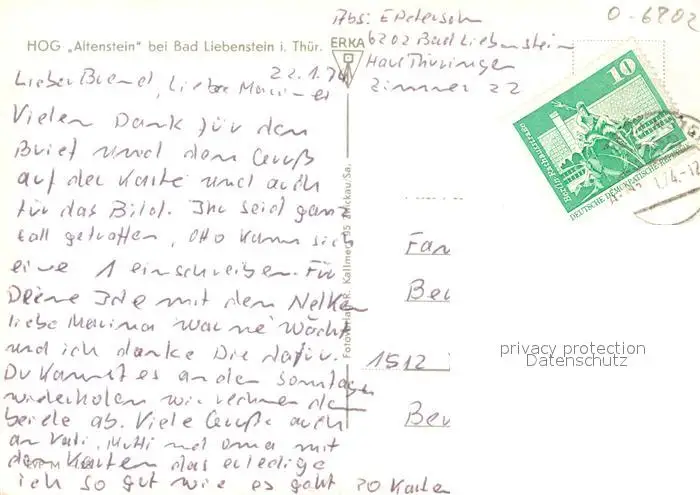 Abs: E Petersohn
0-6802
HOG „Altenstein" bei Bad Liebenstein i. Thür.
ERKA
6202 Bad Liebenstein
Haus Thüringen
Zimmer 22
22.1.74
Lieber Bernd, Liebe Marina
Vielen Dank für den
Brief und den Gruß
auf der Karte und auch
für das Bild. Ihr seid gan
toll getroffen, Otto kann sich
eine 1 einschreiben. Für
Deine Idee mit den Nelken
liebe Marina war ne
und ich danke Dir dafür.
Du kannst es an den Sonntagen
wiederholen wir rechnen dann
beide ab. Viele Grüße auch
an Vati, Mutti und Oma mit
den Karten das erledige
ich so gut wie es geht
20 Karten
Fotoverlag R. Kallmer, 95 Zwickau/Sa.
10
Berlin, Rathausstraße
DEUTSCHE DEMOKRATISCHE REPUBLIK
.1.74-12
Fam
Ber
1512
Ber
privacy protection
Datenschutz